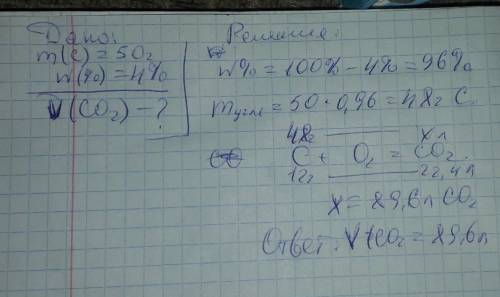 Дано:
m(C) = 50г
w(%) = 4%
V(CO₂) - ?
Решение:
w% = 100% - 4% = 96%
m угля = 50 · 0,96 = 48г C.
48г xл
C + O₂ = CO₂.
12г 22,4л
x = 89,6л CO₂
Ответ: V CO₂ = 89,6л